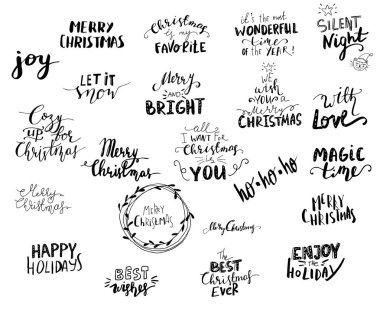 MERRY
CHRISTMAS
Christmas
is my
FAVORITE
it's the most
WONDERFUL
time
OF THE YEAR!
SILENT
Night
joy
LET IT
snow
Merry
AND
BRIGHT
WE
WISH
YOU A
Merry
CHRISTMAS
With
LOVE
Cozy
UP for
Christmas
Merry
Christmas
all
I WANT FOR
Christmas
IS
YOU
ho•ho•ho
MAGIC
time
Merry
Christmas
MERRY
CHRISTMAS
Merry Christmas
MERRY
CHRISTMAS
HAPPY
HOLIDAYS
BEST
wishes
The
BEST
Christmas
EVER
ENJOY
the
HOLIDAY